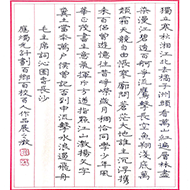 獨立寒秋湘江北去橘子洲頭看萬山紅遍層林盡
染漫江碧透百舸爭流鷹擊長空魚翔淺底萬
類霜天競自由悵寥廓問蒼茫大地誰主沉浮攜
來百侶曾遊憶往昔崢嶸歲月稠恰同學少年風
華正茂書生意氣揮斥方遒指點江山激揚文字
糞土當年萬戶侯曾記否到中流擊水浪遏飛舟
毛主席詞沁園春長沙
百人作品展